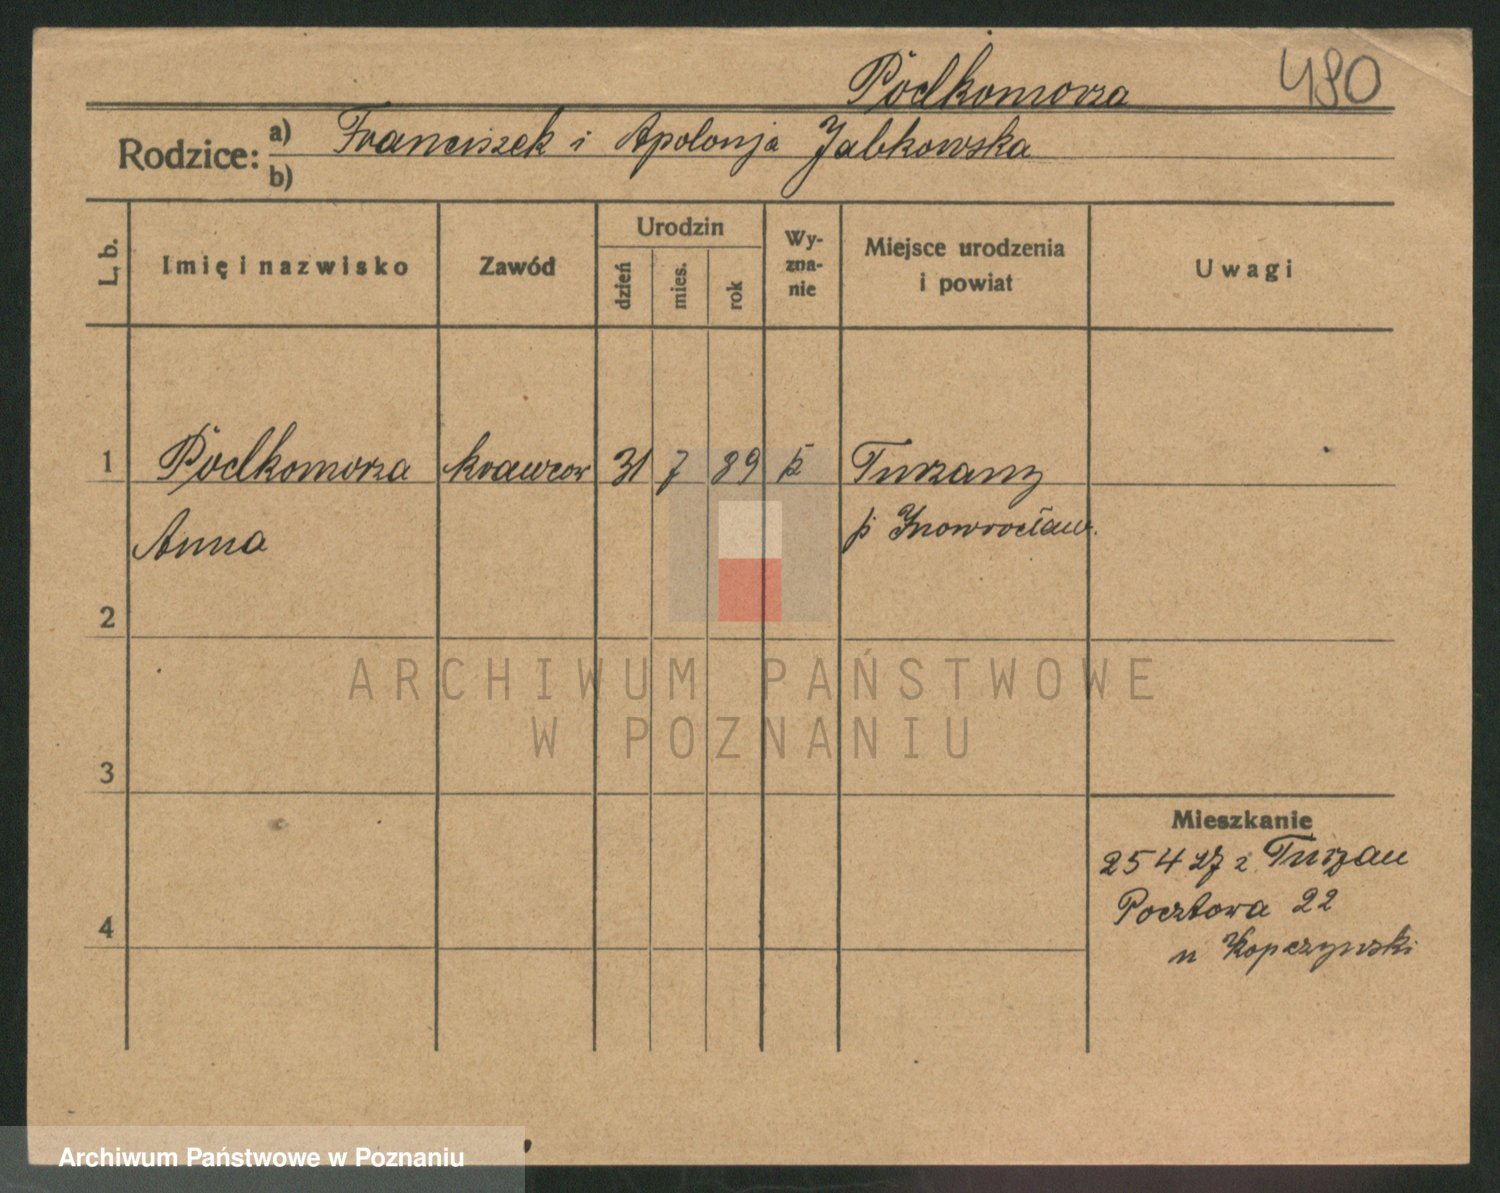 Podkomorza
480
Rodzice: a) Franciszek i Apolonja Jabkowska
b)
L. b. Imię i nazwisko Zawód Urodzin dzień mies. rok Wy-zna-nie Miejsce urodzenia i powiat Uwagi
1 Podkomorza krawcow 31 7 89 k Turzany
Anna p Inowrocław.
2
ARCHIWUM PAŃSTWOWE
W POZNANIU
3
Mieszkanie
25 4 27 z Turzan
Pocztowa 22
4
u Kopczynski
Archiwum Państwowe w Poznaniu